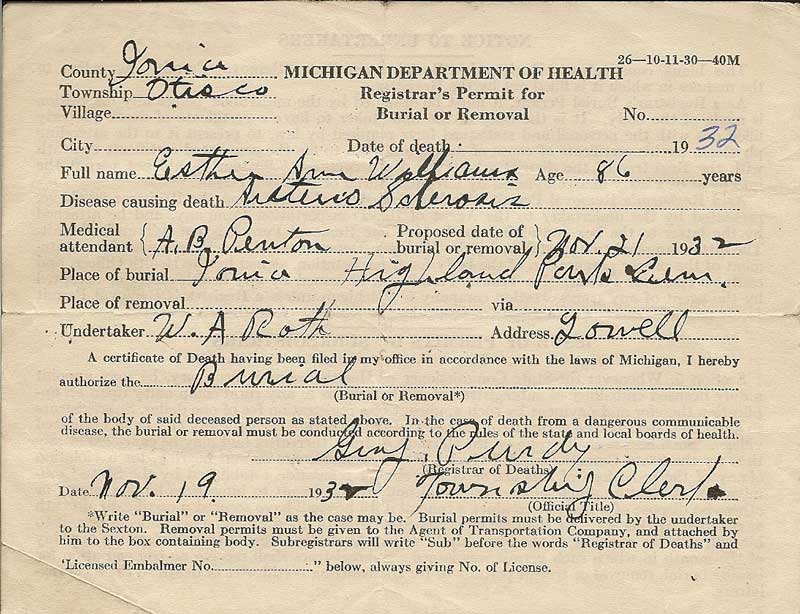 26—10-11-30—40M
County Ionia MICHIGAN DEPARTMENT OF HEALTH
Township Otisco Registrar's Permit for
Village Burial or Removal No.
City Date of death 19 32
Full name Esther Ann Williams Age 86 years
Disease causing death Arterio Sclerosis
Medical attendant { A. B. Penton Proposed date of burial or removal } Nov. 21 1932
Place of burial Ionia Highland Park Cem.
Place of removal via
Undertaker W. A Roth Address Lowell
A certificate of Death having been filed in my office in accordance with the laws of Michigan, I hereby
authorize the Burial
(Burial or Removal*)
of the body of said deceased person as stated above. In the case of death from a dangerous communicable
disease, the burial or removal must be conducted according to the rules of the state and local boards of health.
Purdy
(Registrar of Deaths)
Date Nov. 19 1932 Township Clerk
(Official Title)
*Write "Burial" or "Removal" as the case may be. Burial permits must be delivered by the undertaker
to the Sexton. Removal permits must be given to the Agent of Transportation Company, and attached by
him to the box containing body. Subregistrars will write "Sub" before the words "Registrar of Deaths" and
'Licensed Embalmer No. " below, always giving No. of License.